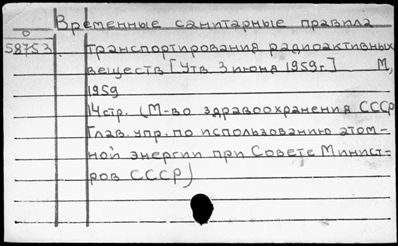 Временные санитарные правила
0
58753 транспортирования радиоактивных
веществ [Утв. 3 июня 1959г.] М,
1959
14стр. (М-во здравоохранения СССР
Глав. упр. по использованию атом-
ной энергии при Совете Минист-
ров СССР)